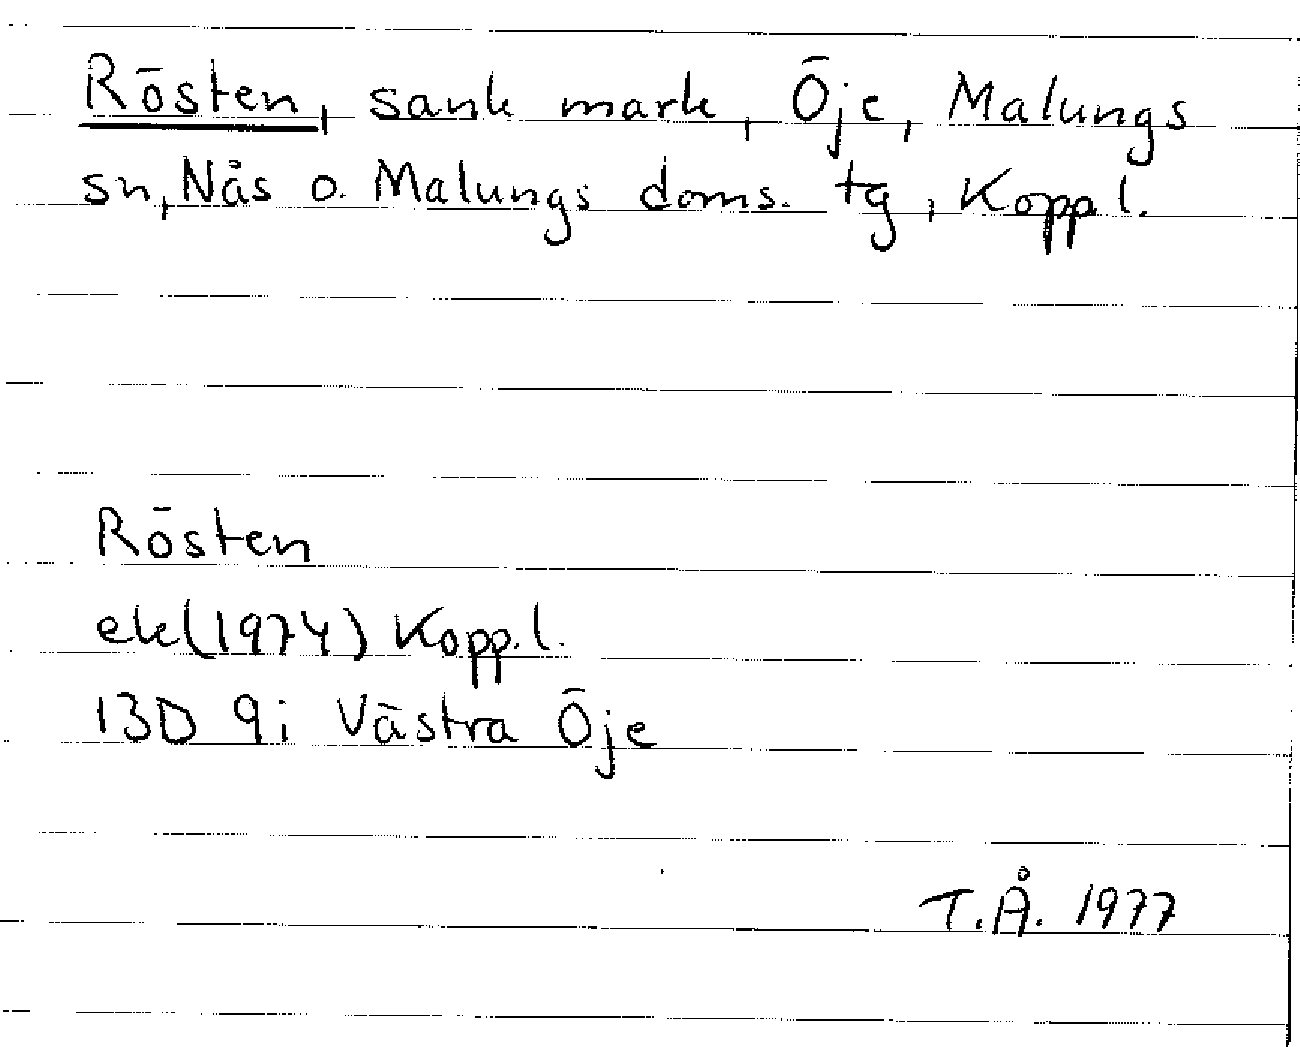 Rösten, sank mark, Öje, Malungs
sn, Nås o. Malungs doms. tg, Kopp.l.
Rösten
ek (1974) Kopp.l.
13D 9i Västra Öje
T.Å. 1977